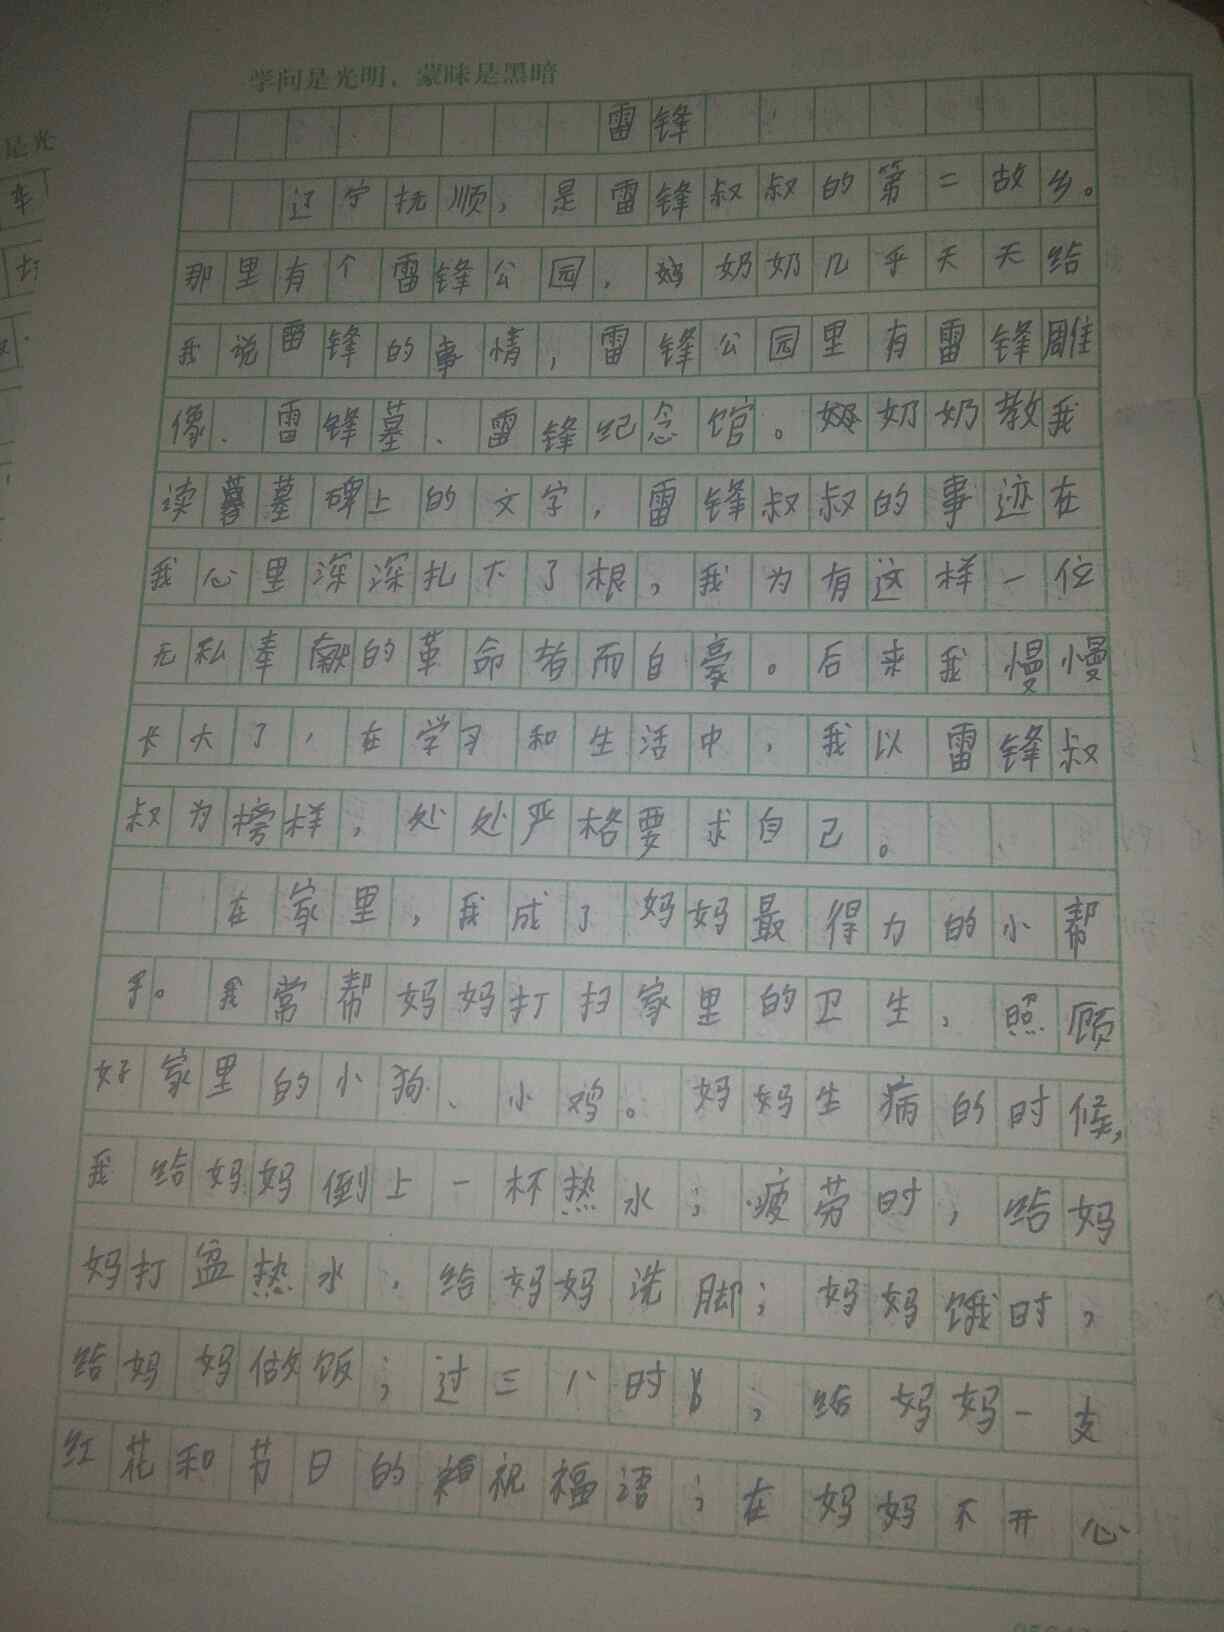 学问是光明，蒙昧是黑暗
雷锋
辽宁抚顺，是雷锋叔叔的第二故乡。
那里有个雷锋公园，奶奶几乎天天给
我说雷锋的事情，雷锋公园里有雷锋雕
像、雷锋墓、雷锋纪念馆。奶奶教我
读墓碑上的文字，雷锋叔叔的事迹在
我心里深深扎下了根，我为有这样一位
无私奉献的革命者而自豪。后来我慢慢
长大了，在学习和生活中，我以雷锋叔
叔为榜样，处处严格要求自己。
在家里，我成了妈妈最得力的小帮
手。我常帮妈妈打扫家里的卫生，照顾
好家里的小狗、小鸡。妈妈生病的时候，
我给妈妈倒上一杯热水；疲劳时，给妈
妈打盆热水，给妈妈洗脚；妈妈饿时，
给妈妈做饭；过三八时，给妈妈一支
红花和节日的祝福语；在妈妈不开心
是光
车